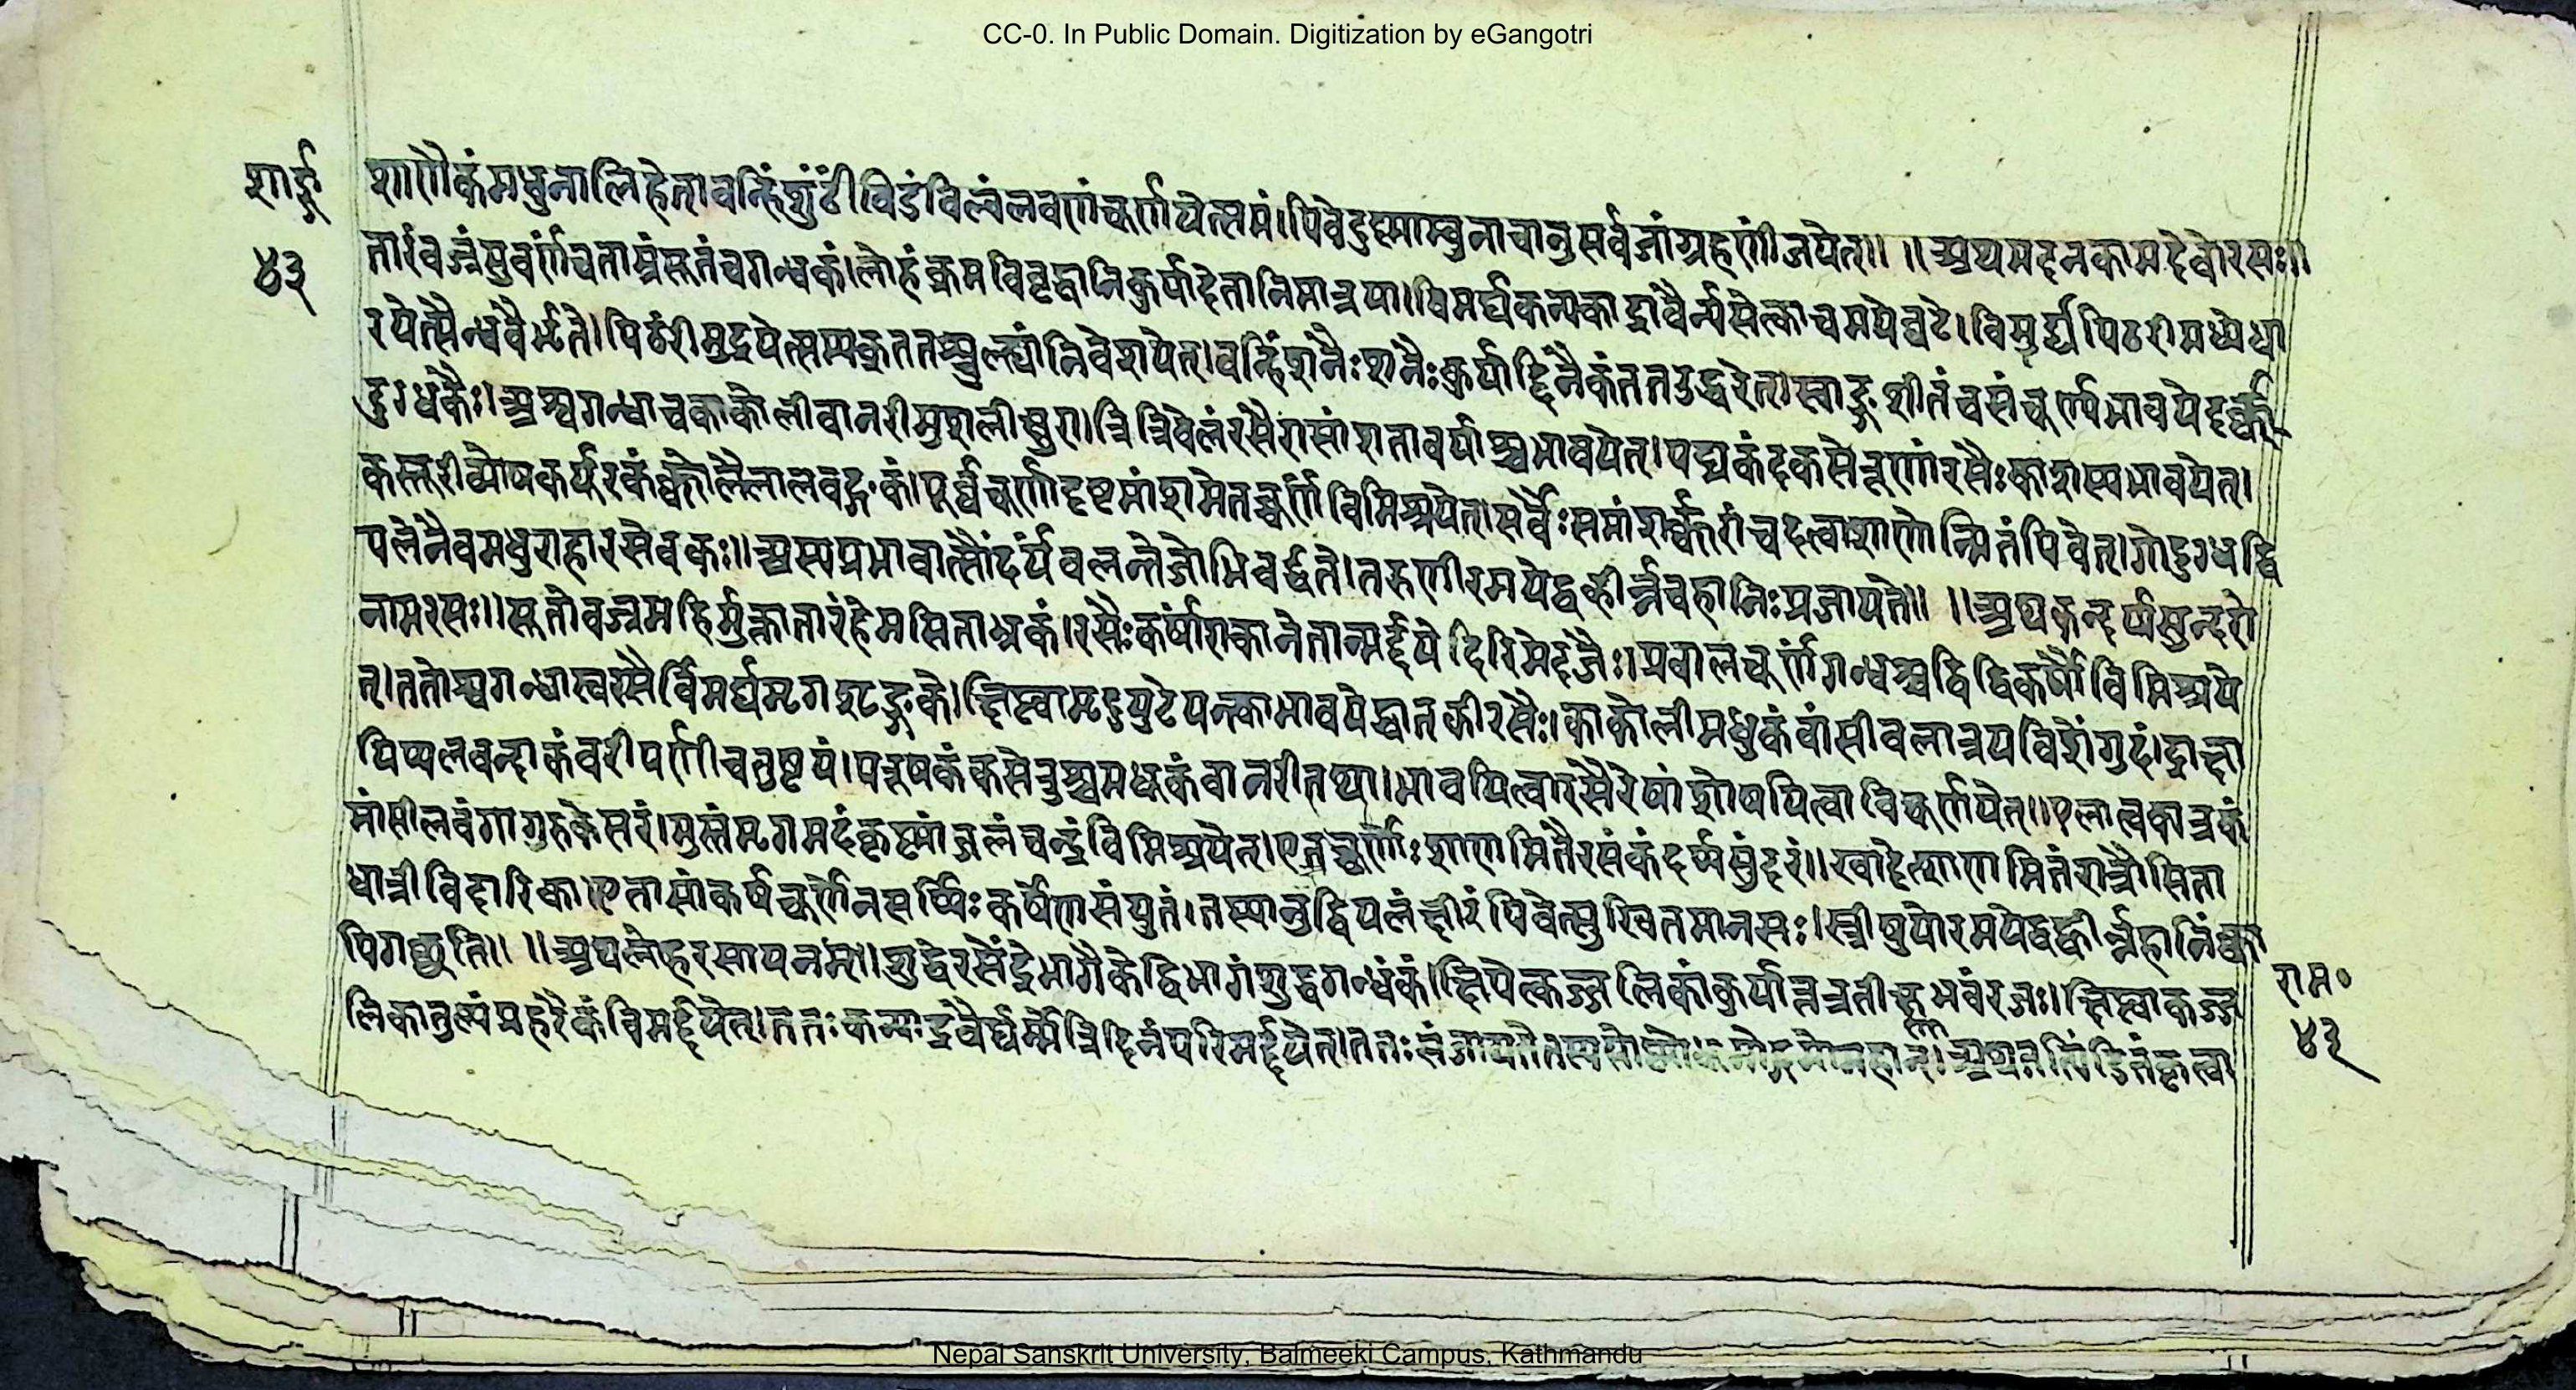 CC-0. In Public Domain. Digitization by eGangotri
शार्ङ्ग
४३
शाणैकंमधुनालिहेत्।वन्हिंशुंठींविडंविल्वंलवणंचूर्णयेत्समं।पिवेदुष्णाम्वुनाचानुसर्वजांग्रहणींजयेत्॥ ॥अथमदनकामदेवोरसः॥
तारंवज्रंसुवर्णंचताम्रंसूतंचगन्धकं।लोहंक्रमविवृद्धानिकुर्यादेतानिमात्रया।विमर्द्यकन्यकाद्रावैर्न्यसेत्काचमयेघटे।विमुद्र्यपिठरीमध्येधा
रयेत्सैन्धवैर्भृते।पिठरींमुद्रयेत्सम्यक्ततश्चुल्ल्यांनिवेशयेत्।वन्हिंशनैःशनैःकुर्याद्दिनैकंततउद्धरेत्।स्वाङ्गशीतंचसंचूर्ण्यभावयेदर्क्क
दुग्धकैः।अश्वगन्धाचकाकोलीवानरीमुशलीक्षुरा।त्रित्रिवेलंरसैरासांशतावर्याश्चभावयेत्।पद्मकंदकसेरूणांरसैःकाशस्यभावयेत्।
कस्तूरीव्योषकर्पूरकंक्कोलैलालवङ्गकं।पूर्वचूर्णादष्टमांशमेतच्चूर्णंविमिश्रयेत्।सर्वैःसमांशर्क्करांचदत्वाशाणोन्मितंपिवेत्।गोदुग्धद्वि
पलेनैवमधुराहारसेवकः॥अस्यप्रभावात्सौंदर्यंवलन्तेजोभिवर्द्धते।तरुणीरमयेद्वह्वीर्न्नचहानिःप्रजायते॥ ॥अथकन्दर्प्पसुन्दरो
नामरसः॥सूतोवज्रमहिर्मुक्तातारंहेमसिताभ्रकं।रसैःकर्षांशकानेतान्मर्द्दयेदिरिमेदजैः।प्रवालचूर्णंगन्धश्चद्विद्विकर्षौविमिश्रये
त्।ततोश्वगन्धास्वरसैर्विमर्द्यमृगशृङ्गके।क्षिप्त्वामृदुपुटेपक्त्वाभावयेद्धातकीरसैः।काकोलीमधुकंवांसीवलात्रयविशेंगुदं।द्राक्षा
पिप्पलवन्दाकंवरीपर्णीचतुष्टयं।परूषकंकसेरुश्चमधूकंवानरीतथा।भावयित्वारसैरेषांशोषयित्वाविचूर्णयेत्॥एलात्वक्पत्रकं
मांसीलवंगागुरुकेसरं।मुस्तंमृगमदंकृष्णांजलंचन्द्रंविमिश्रयेत्।एतच्चूर्णैःशाणमितैरसंकंदर्प्पसुंदरं॥खादेत्शाणमितंरात्रौसिता
धात्रीविदारिका।एतासांकर्षचूर्णेनसर्प्पिःकर्षेणसंयुतं।तस्यानुद्विपलंक्षीरंपिवेत्सुखितमानसः।स्त्रीषुपोरमयेद्वह्वीर्न्नहानिंक्वा
पिगच्छति॥ ॥अथलोहरसायनम्॥शुद्धेरसेंद्रेभागैकेद्विभागंशुद्धगन्धकं।क्षिपेत्कज्जलिकांकुर्यात्तत्रतीक्ष्णभवंरजः।क्षिप्त्वाकज्ज
लिकातुल्यंप्रहरैकंविमर्द्दयेत्।ततःकन्याद्रवैर्घर्म्मेत्रिदिनंपरिमर्द्दयेत्।ततःसंजायते
राम०
४३
Nepal Sanskrit University, Balmeeki Campus, Kathmandu